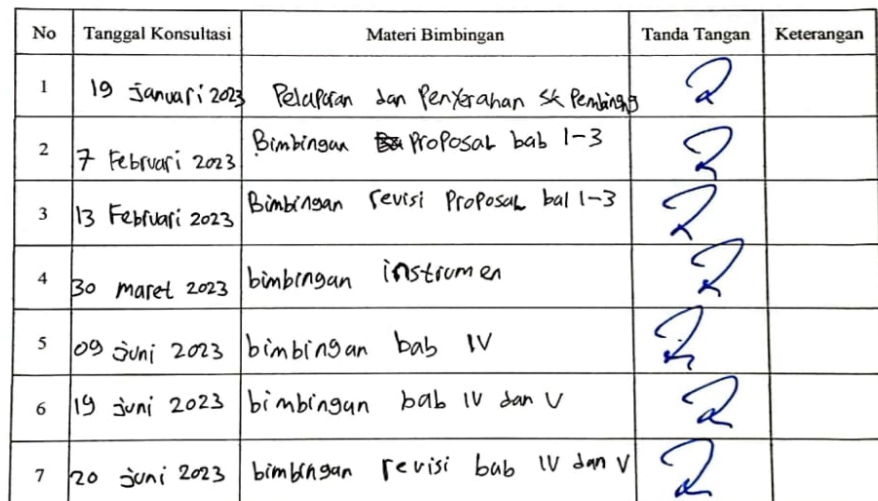 No Tanggal Konsultasi Materi Bimbingan Tanda Tangan Keterangan
1 19 Januari 2023 Pelaporan dan Penyerahan SK Pembingg
2 7 Februari 2023 Bimbingan Proposal bab 1-3
3 13 Februari 2023 Bimbingan revisi Proposal bal 1-3
4 30 maret 2023 bimbingan instrumen
5 09 juni 2023 bimbingan bab IV
6 19 juni 2023 bimbingan bab IV dan V
7 20 juni 2023 bimbingan revisi bab IV dan V